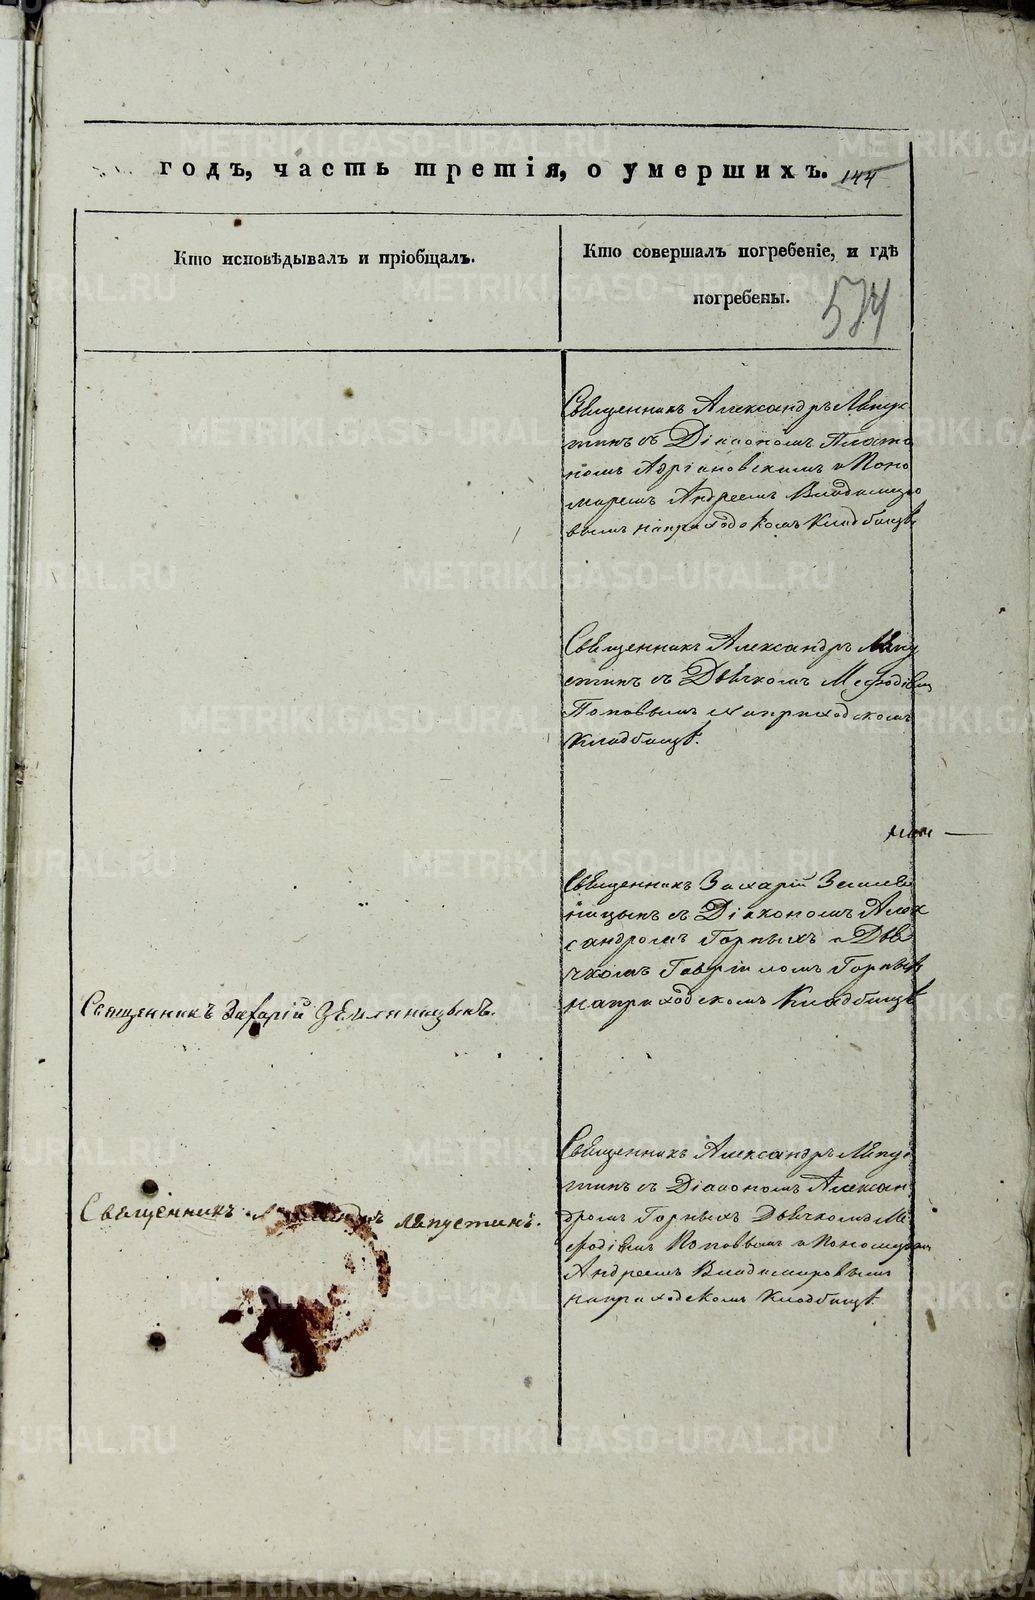 годъ, часть третія, о умершихъ. 144
Кто исповѣдывалъ и пріобщалъ.
Кто совершалъ погребеніе, и гдѣ
погребены.
574
Священникъ Александръ Ляпус
тинъ съ Діакономъ Плато
номъ Адріановскимъ и Поно
маремъ Андреемъ Владимиро
вымъ на приходскомъ Кладбищѣ
Священникъ Александръ Ляпу
стинъ съ Дьячкомъ Мефодіемъ
Поповымъ на приходскомъ
Кладбищѣ.
Священникъ Захарій Земляни
ницынъ съ Діакономъ Алек
сандромъ Горныхъ и Дья
чкомъ Гавріиломъ Горныхъ
на приходскомъ Кладбищѣ
Священникъ Захарій Земляницынъ.
Священникъ Александръ Ляпус
тинъ съ Діакономъ Алексан
дромъ Горныхъ Дьячкомъ Ме
фодіемъ Поповымъ и Пономаремъ
Андреемъ Владимировымъ
на приходскомъ Кладбищѣ.
Священникъ Александръ Ляпустинъ.
METRIKI.GASO-URAL.RU